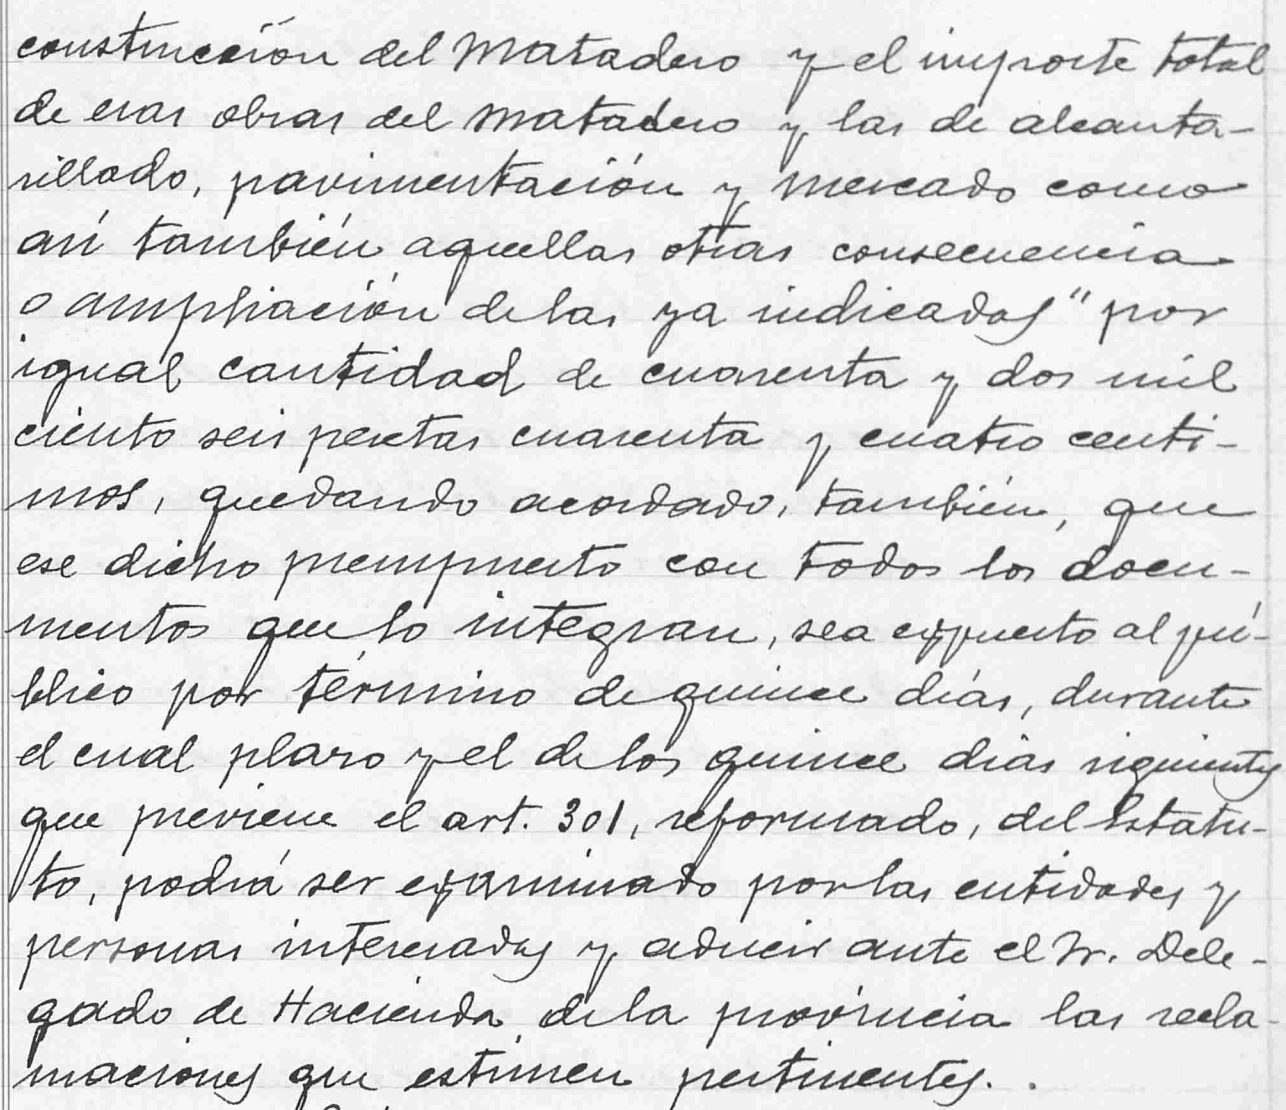 construcción del Matadero y el importe total
de esas obras del Matadero y las de alcanta-
rillado, pavimentación y mercado como
así también aquellas otras consecuencia
o ampliación de las ya indicadas" por
igual cantidad de cuarenta y dos mil
ciento seis pesetas cuarenta y cuatro centi-
mos, quedando acordado, también, que
ese dicho presupuesto con todos los docu-
mentos que lo integran, sea expuesto al pú-
blico por término de quince días, durante
el cual plazo y el de los quince días siguientes
que previene el art. 301, reformado, del Estatu-
to, podrá ser examinado por las entidades y
personas interesadas y aducir ante el Sr. Dele-
gado de Hacienda de la provincia las recla-
maciones que estimen pertinentes. .